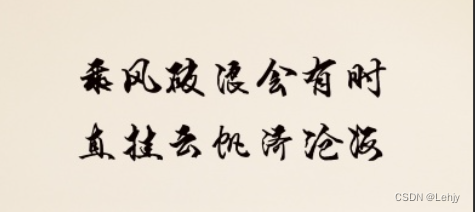 乘风破浪会有时
直挂云帆济沧海
CSDN @Lehjy